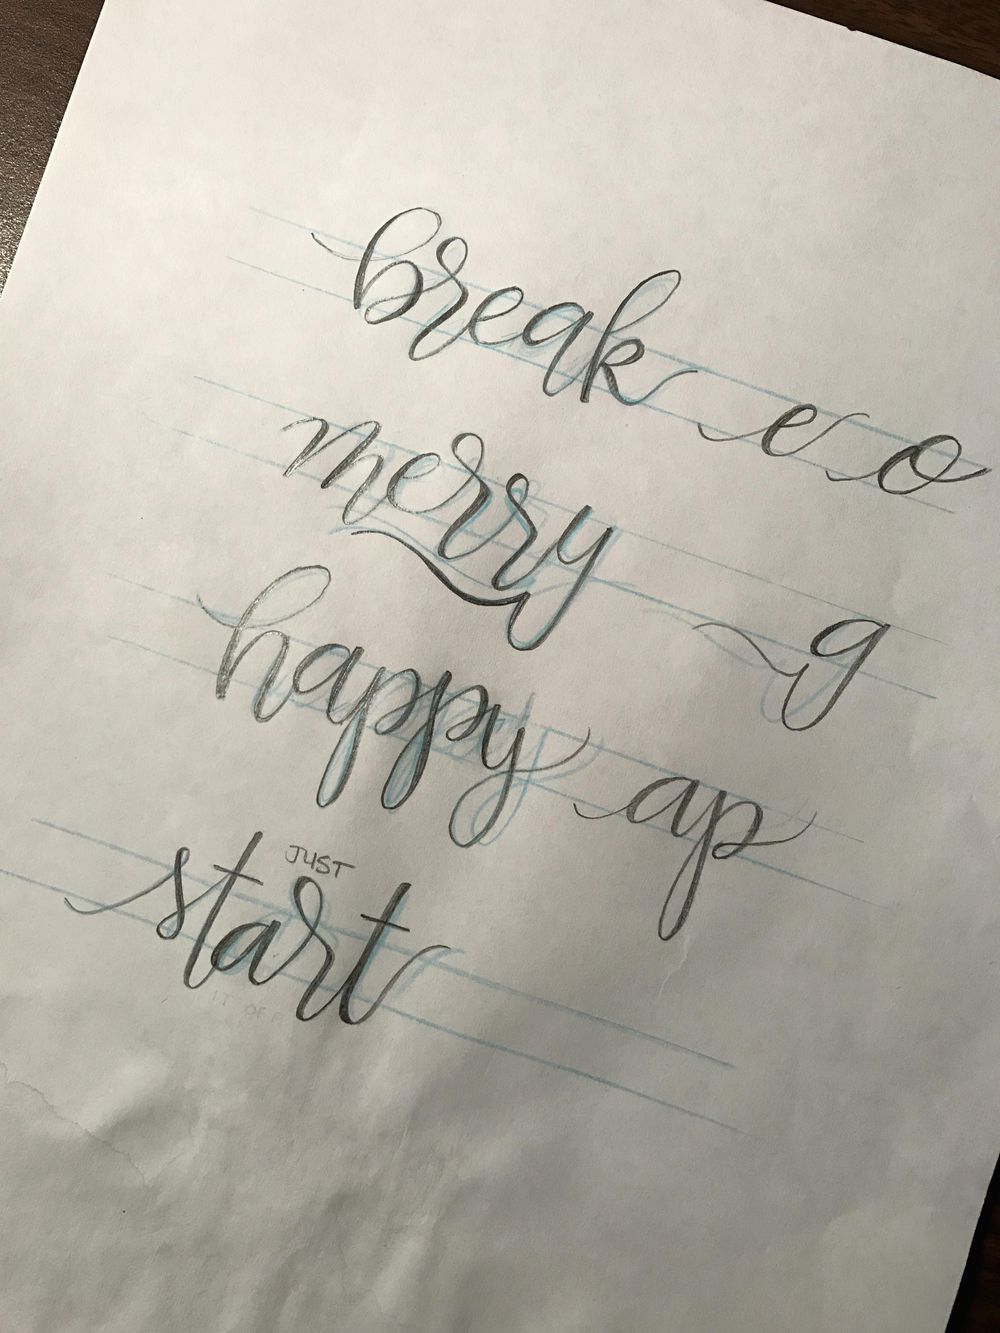 break e o
merry g
happy ap
JUST
start
IT OF